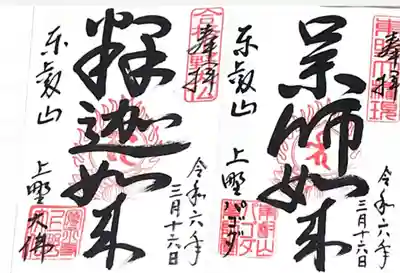 奉拝
令和六年
三月十六日
薬師如来
東叡山 上野パゴダ
奉拝
令和六年
三月十六日
釋迦如来
東叡山 上野大佛